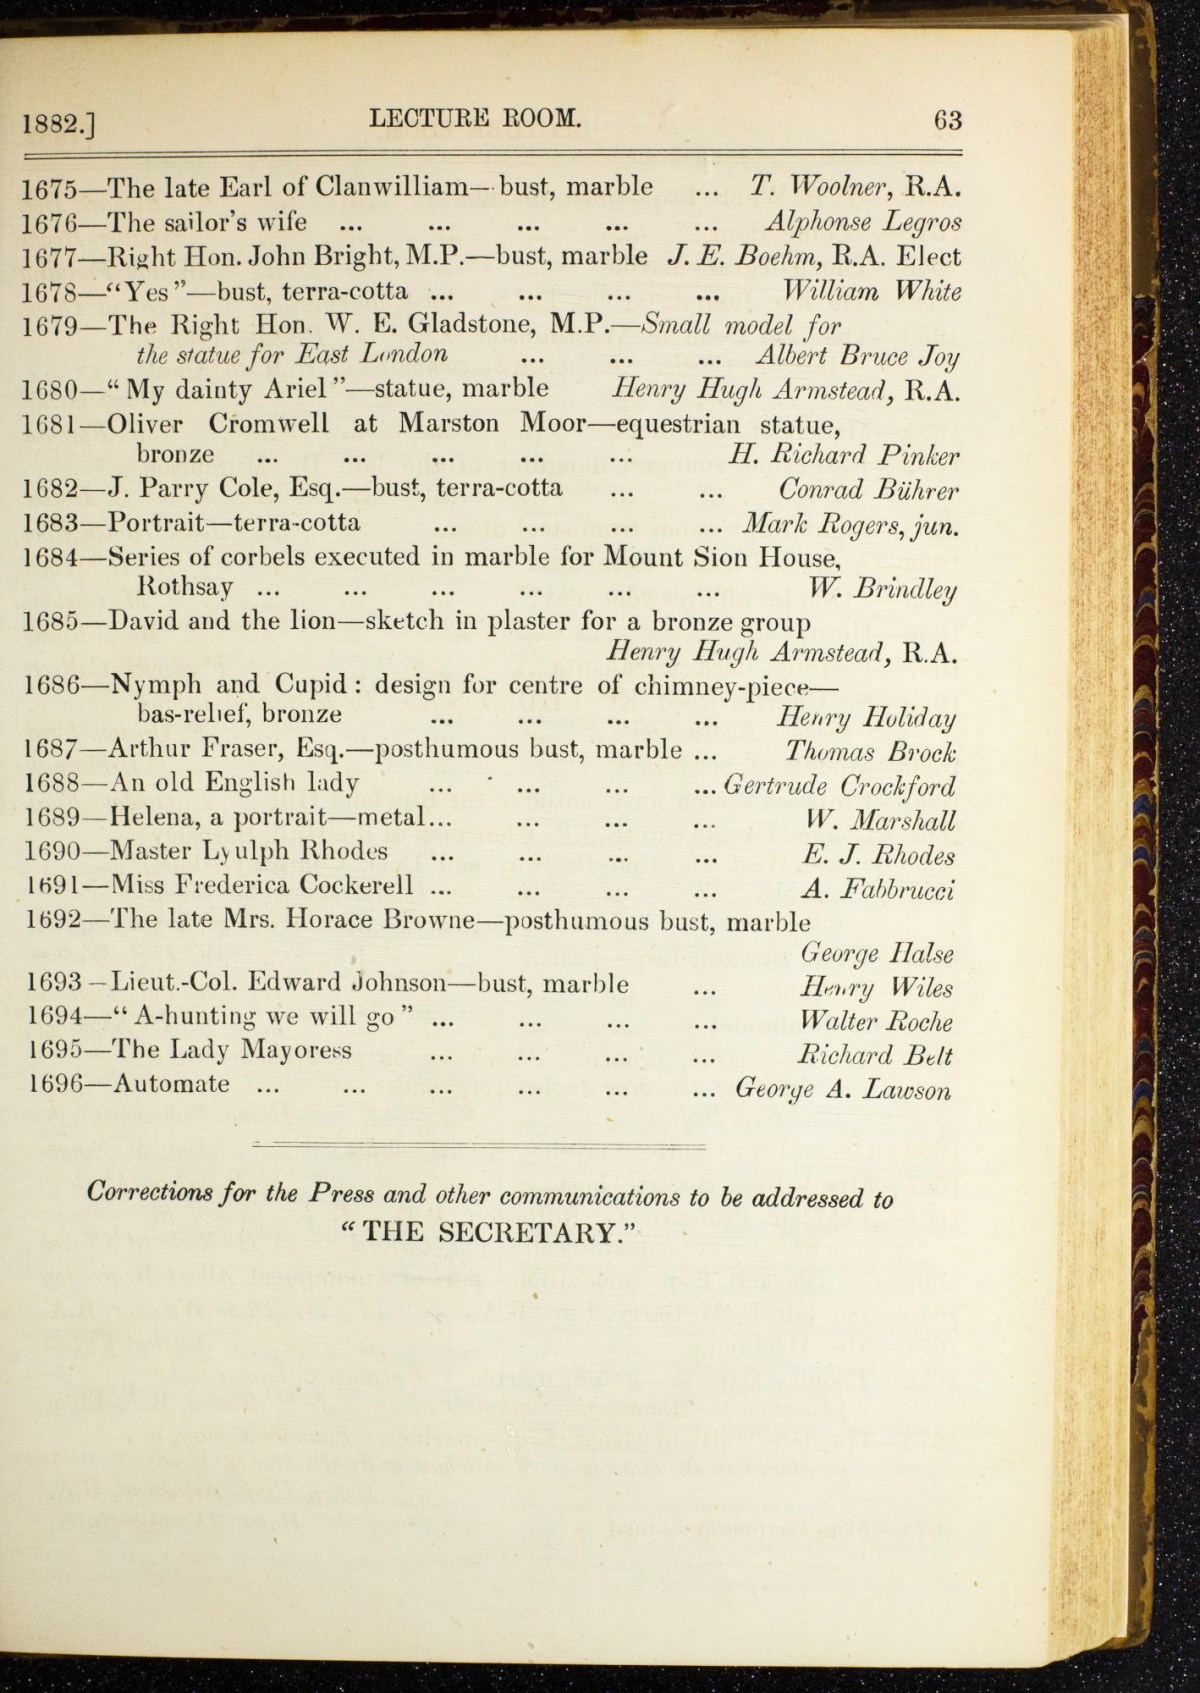 1882.] LECTURE ROOM. 63
1675—The late Earl of Clanwilliam—bust, marble ... T. Woolner, R.A.
1676—The sailor's wife ... ... ... ... ... Alphonse Legros
1677—Right Hon. John Bright, M.P.—bust, marble J. E. Boehm, R.A. Elect
1678—"Yes"—bust, terra-cotta ... ... ... ... William White
1679—The Right Hon. W. E. Gladstone, M.P.—Small model for
the statue for East London ... ... ... Albert Bruce Joy
1680—"My dainty Ariel"—statue, marble Henry Hugh Armstead, R.A.
1681—Oliver Cromwell at Marston Moor—equestrian statue,
bronze ... ... ... ... ... H. Richard Pinker
1682—J. Parry Cole, Esq.—bust, terra-cotta ... ... Conrad Bührer
1683—Portrait—terra-cotta ... ... ... ... Mark Rogers, jun.
1684—Series of corbels executed in marble for Mount Sion House,
Rothsay ... ... ... ... ... ... W. Brindley
1685—David and the lion—sketch in plaster for a bronze group
Henry Hugh Armstead, R.A.
1686—Nymph and Cupid: design for centre of chimney-piece—
bas-relief, bronze ... ... ... ... Henry Holiday
1687—Arthur Fraser, Esq.—posthumous bust, marble ... Thomas Brock
1688—An old English lady ... ... ... ... Gertrude Crockford
1689—Helena, a portrait—metal... ... ... ... W. Marshall
1690—Master Lyulph Rhodes ... ... ... ... E. J. Rhodes
1691—Miss Frederica Cockerell ... ... ... ... A. Fabbrucci
1692—The late Mrs. Horace Browne—posthumous bust, marble
George Halse
1693—Lieut.-Col. Edward Johnson—bust, marble ... Henry Wiles
1694—"A-hunting we will go" ... ... ... ... Walter Roche
1695—The Lady Mayoress ... ... ... ... Richard Belt
1696—Automate ... ... ... ... ... ... George A. Lawson
Corrections for the Press and other communications to be addressed to
"THE SECRETARY."